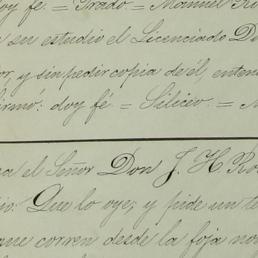 oy fé. = Prado = Manuel Ro
n su estudio el Licenciado D
or, y sin pedir copia de él, enten
firmó: doy fé = Siliceo. =
a el Señor Don J. H. Ro
io: Que lo oye; y pide un te
que corren desde la foja no